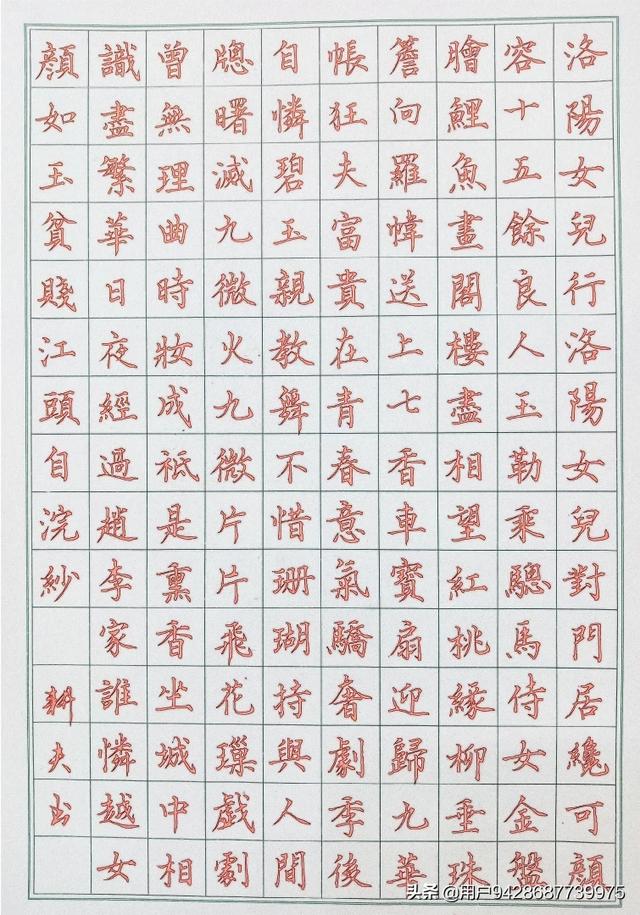 洛陽女兒行洛陽女兒對門居纔可顔
容十五餘良人玉勒乘驄馬侍女金盤
膾鯉魚畫閣樓盡相望紅桃緣柳垂珠
簷向羅幃送上七香車寶扇迎歸九華
帳狂夫富貴在青春意氣驕奢劇季後
自憐碧玉親教舞不惜珊瑚持與人間
牕曙滅九微火九微片片飛花璅戲劇
曾無理曲時妝成祇是熏香坐城中相
識盡繁華日夜經過趙李家誰憐越女
顔如玉貧賤江頭自浣紗
耕夫书
头条 @用户9428687739975